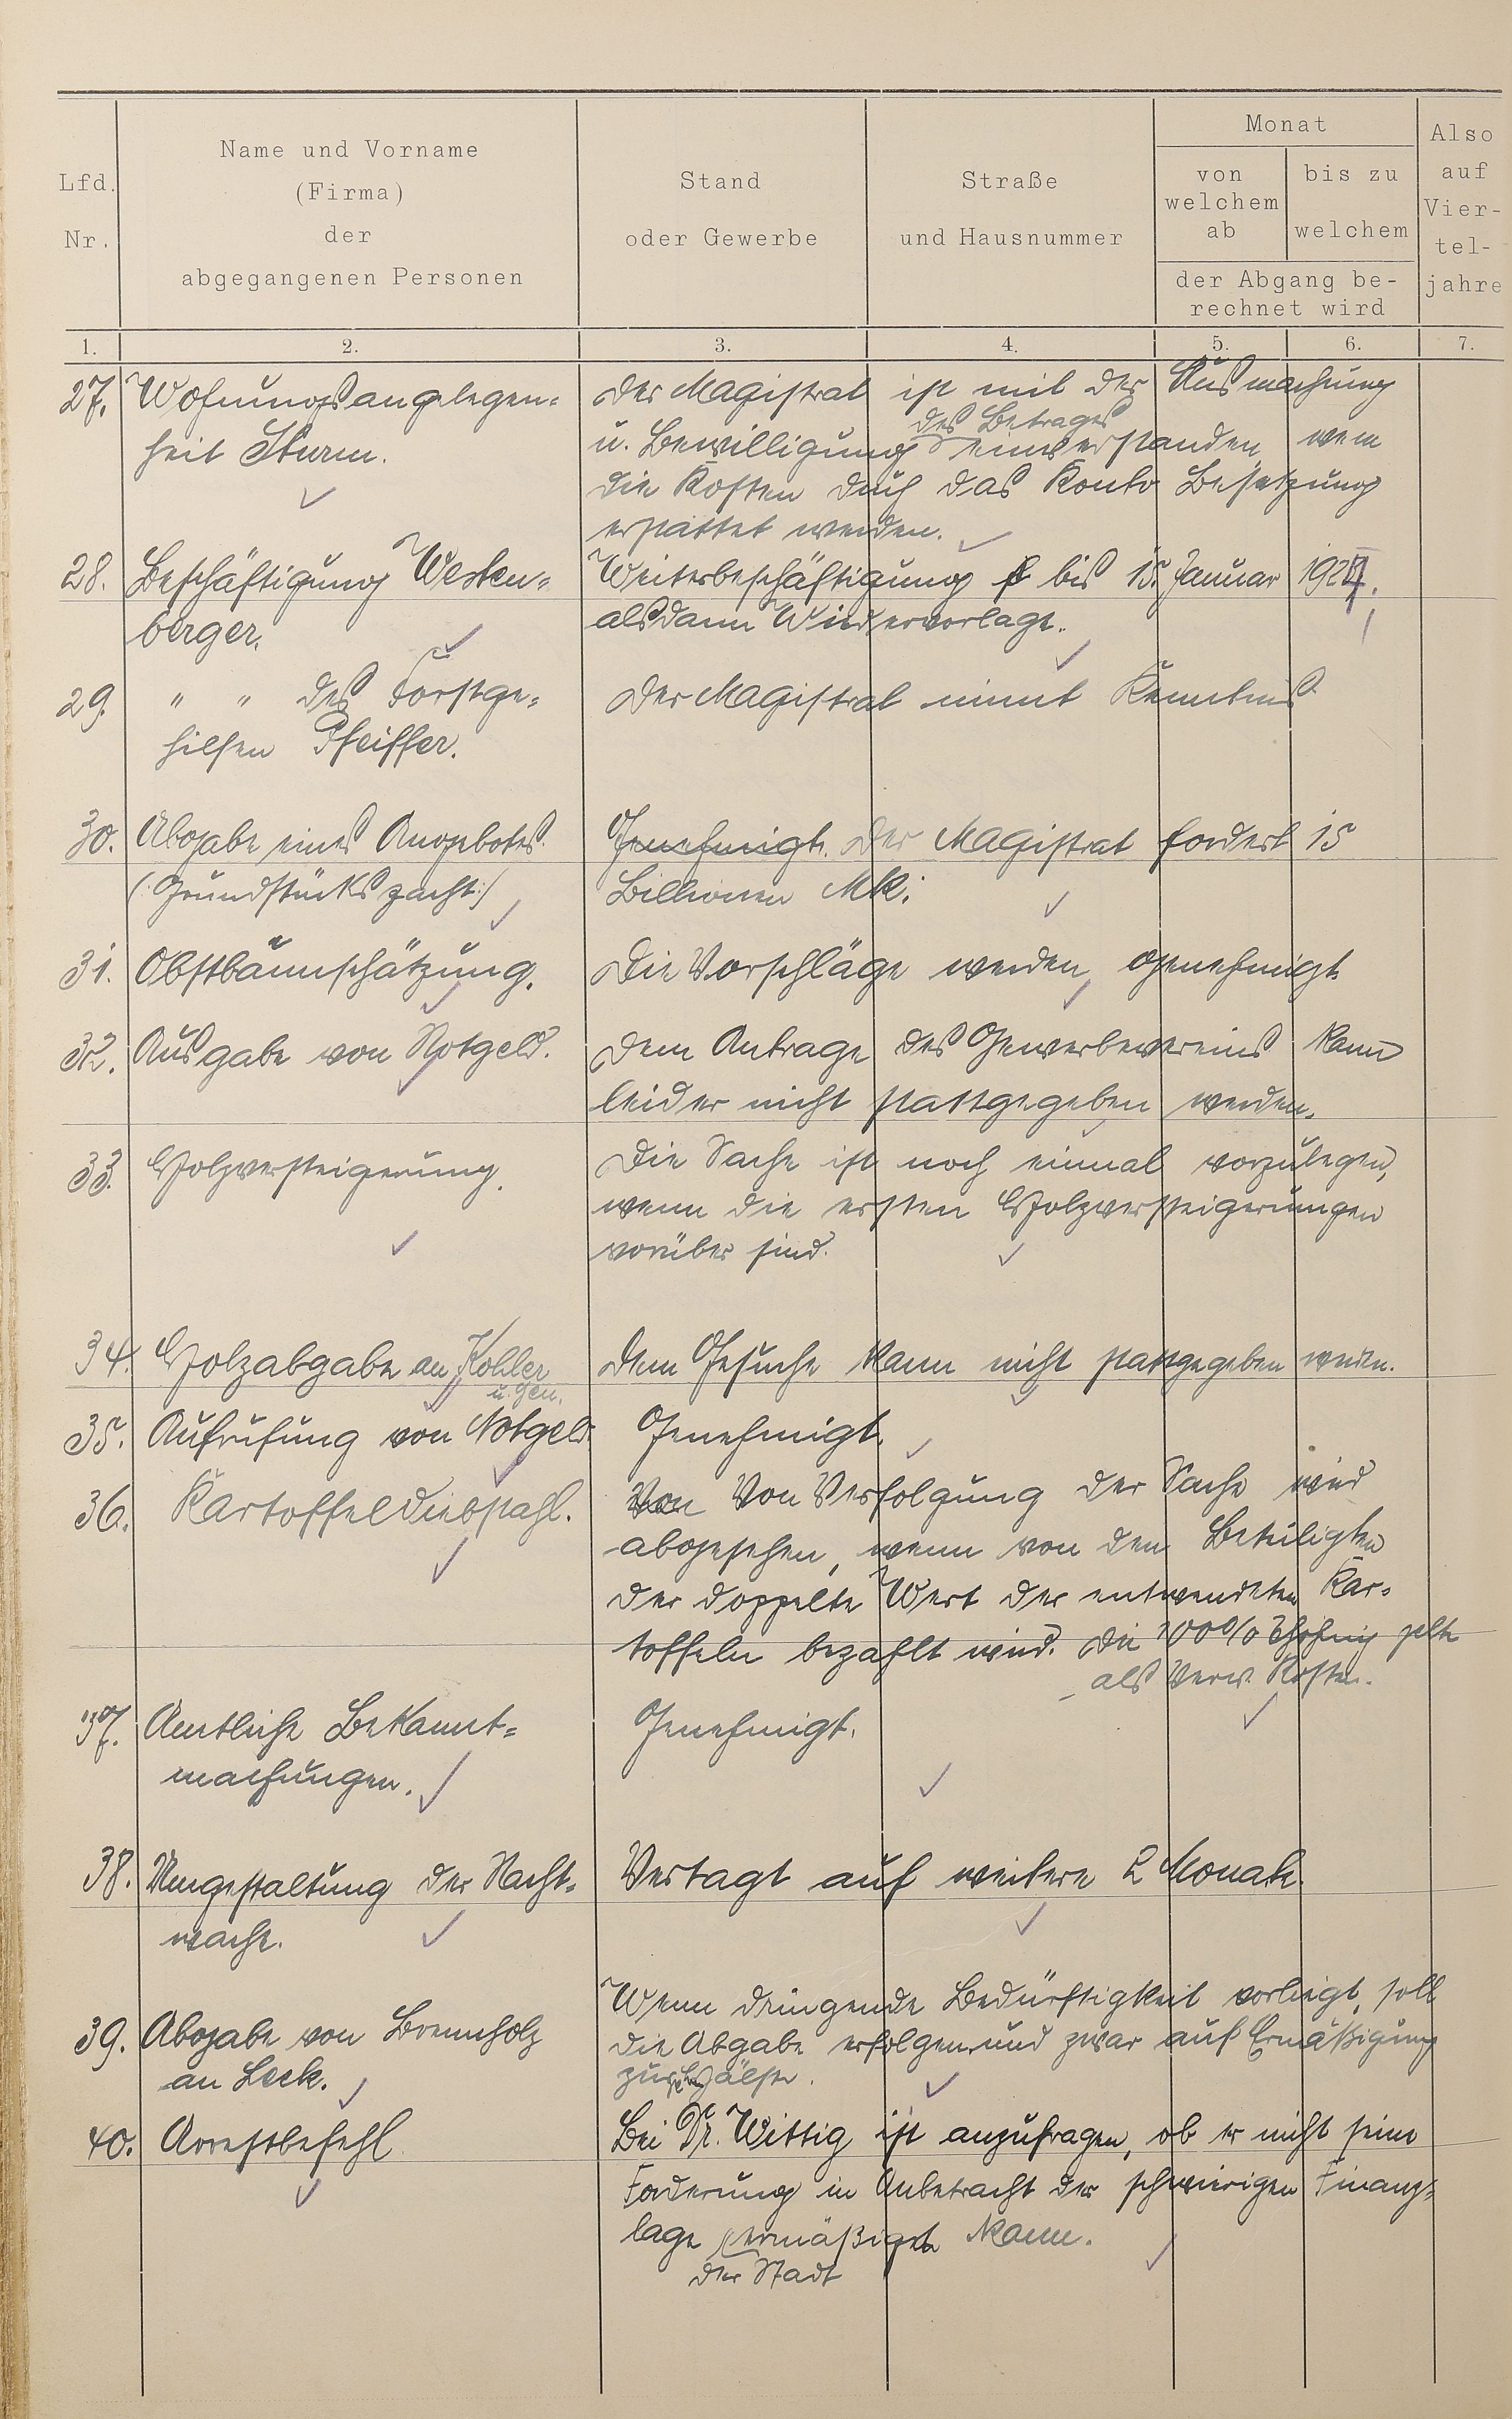 Lfd. Nr.
Name und Vorname
(Firma)
der
abgegangenen Personen
Stand
oder Gewerbe
Straße
und Hausnummer
Monat
von
welchem
ab
bis zu
welchem
der Abgang be-
rechnet wird
Also
auf
Vier-
tel-
jahre
1. 2. 3. 4. 5. 6. 7.
27. Wohnungsangelegen-
heit Sturm.
Der Magistrat ist mit der Ausmachung
des Betrages
u. Bewilligung einverstanden wenn
die Kosten durch das Konto Besetzung
erstattet werden.
28. Beschäftigung Westen-
berger.
Weiterbeschäftigung bis 15. Januar 1924.
alsdann Wiedervorlage.
29. " " des Forstge-
hilfen Pfeiffer.
Der Magistrat nimmt Kenntnis
30. Abgabe eines Angebotes
(:Grundstückspacht:)
Genehmigt. Der Magistrat fordert 15
Billionen Mk.
31. Obstbaumschätzung.
Die Vorschläge werden genehmigt.
32. Ausgabe von Notgeld.
Dem Antrage des Gewerbevereins kann
leider nicht stattgegeben werden.
33. Holzversteigerung.
Die Sache ist noch einmal vorzulegen,
wenn die ersten Holzversteigerungen
vorüber sind.
34. Holzabgabe an Kohler
u. Gen.
Dem Gesuche kann nicht stattgegeben werden.
35. Aufrufung von Notgeld
Genehmigt.
36. Kartoffeldiebstahl.
Von Von Verfolgung der Sache wird
abgesehen, wenn von den Beteiligten
der doppelte Wert der entwendeten Kar-
toffeln bezahlt wird. Die 100% Erhöhung gelten
als Verw. Kosten.
37. Amtliche Bekannt-
machungen.
Genehmigt.
38. Umgestaltung der Nacht-
wache.
Vertagt auf weitere 2 Monate.
39. Abgabe von Brennholz
an Leck.
Wenn dringende Bedürftigkeit vorliegt, soll
die Abgabe erfolgen und zwar auf Ermäßigung
zur Hälfte.
40. Arrestbefehl
Bei Dr. Wittig ist anzufragen, ob er nicht seine
Forderung in Anbetracht der schwierigen Finanz-
lage ermäßigen kann.
der Stadt